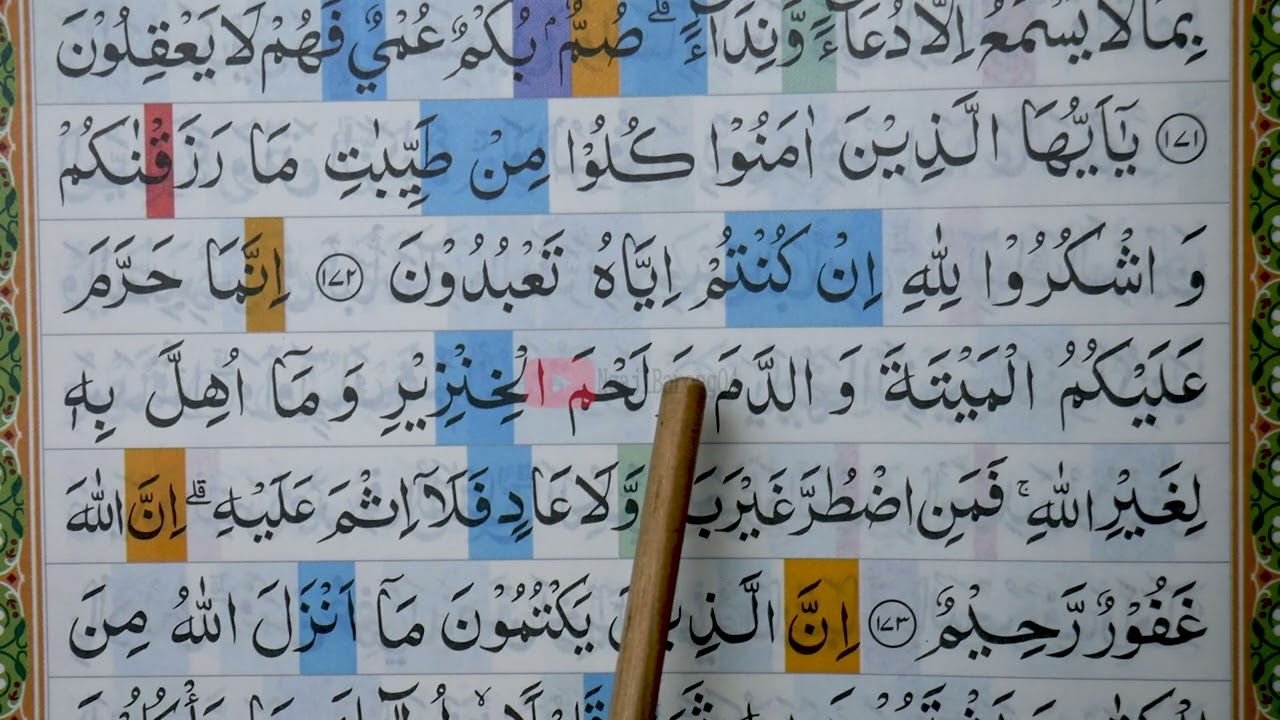 بِمَا لَا يَسْمَعُ اِلَّا دُعَآءً وَّنِدَآءً ۗ صُمٌّ ۢ بُكْمٌ عُمْيٌ فَهُمْ لَا يَعْقِلُوْنَ
١٧١ يٰٓاَيُّهَا الَّذِيْنَ اٰمَنُوْا كُلُوْا مِنْ طَيِّبٰتِ مَا رَزَقْنٰكُمْ
وَ اشْكُرُوْا لِلّٰهِ اِنْ كُنْتُمْ اِيَّاهُ تَعْبُدُوْنَ ١٧٢ اِنَّمَا حَرَّمَ
عَلَيْكُمُ الْمَيْتَةَ وَ الدَّمَ وَ لَحْمَ الْخِنْزِيْرِ وَ مَآ اُهِلَّ بِهٖ
لِغَيْرِ اللّٰهِ ۚ فَمَنِ اضْطُرَّ غَيْرَ وَّلَا عَادٍ فَلَآ اِثْمَ عَلَيْهِ ۗ اِنَّ اللّٰهَ
غَفُوْرٌ رَّحِيْمٌ ١٧٣ اِنَّ الَّذِيْنَ يَكْتُمُوْنَ مَآ اَنْزَلَ اللّٰهُ مِنَ